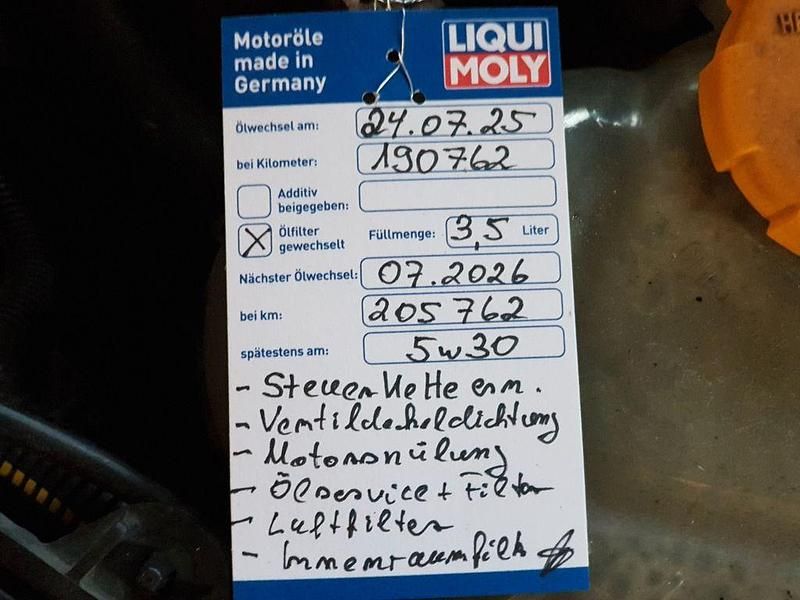 Motoröle
made in
Germany
LIQUI
MOLY
Ölwechsel am: 24.07.25
bei Kilometer: 190762
Additiv
beigegeben:
Ölfilter
gewechselt
Füllmenge: 3,5 Liter
Nächster Ölwechsel: 07.2026
bei km: 205 762
spätestens am: 5w30
- Steuerkette ern.
- Ventildeckeldichtung
- Motorspülung
- Ölservice + Filter
- Luftfilter
- Innenraumfilt